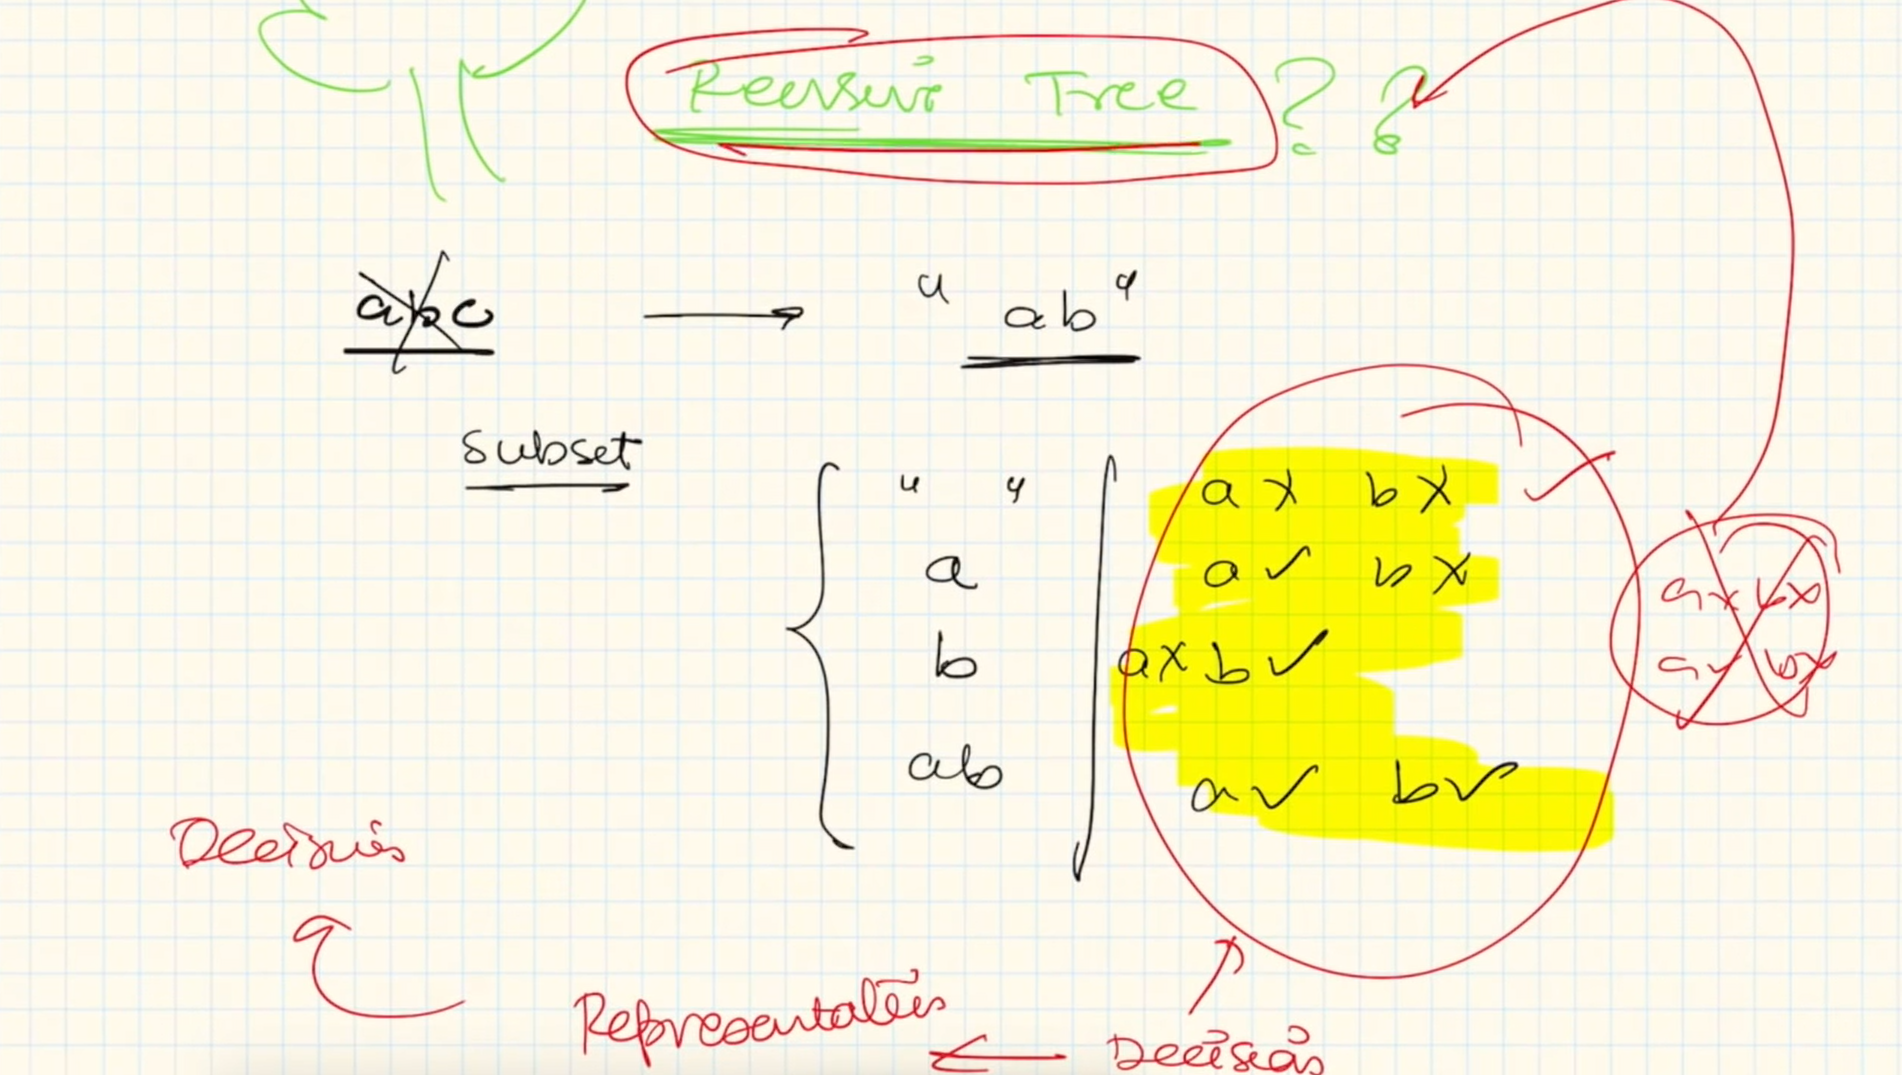 Recursive Tree ??
abc → "ab"
Subset
" " a x b x ✓
a a ✓ b x
b a x b ✓
ab a ✓ b ✓
a x b x
a ✓ b x
Decisions
Representation ← Decisions